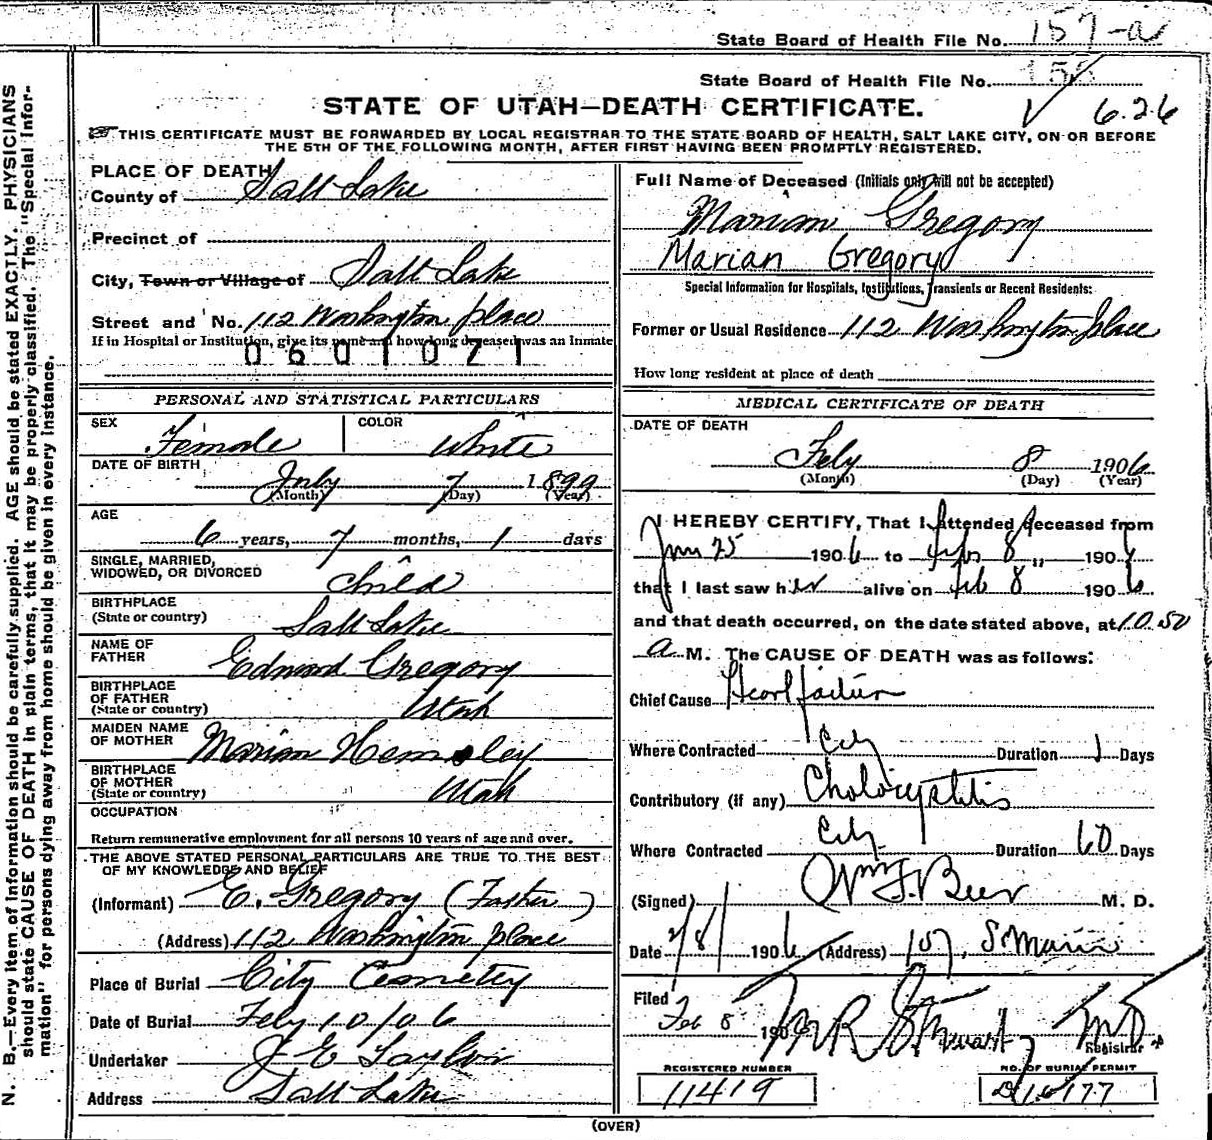 State Board of Health File No. 157-a
State Board of Health File No. 158
6.26
STATE OF UTAH—DEATH CERTIFICATE.
THIS CERTIFICATE MUST BE FORWARDED BY LOCAL REGISTRAR TO THE STATE BOARD OF HEALTH, SALT LAKE CITY, ON OR BEFORE
THE 5TH OF THE FOLLOWING MONTH, AFTER FIRST HAVING BEEN PROMPTLY REGISTERED.
N. B.—Every item of information should be carefully supplied. AGE should be stated EXACTLY. PHYSICIANS
should state CAUSE OF DEATH in plain terms, that it may be properly classified. The "Special Infor-
mation" for persons dying away from home should be given in every instance.
PLACE OF DEATH
County of Salt Lake
Precinct of
City, Town or Village of Salt Lake
Street and No. 112 Washington place
If in Hospital or Institution, give its name and how long deceased was an Inmate
0601071
PERSONAL AND STATISTICAL PARTICULARS
SEX Female COLOR White
DATE OF BIRTH July 7 1899
(Month) (Day) (Year)
AGE
6 years, 7 months, 1 days
SINGLE, MARRIED,
WIDOWED, OR DIVORCED Child
BIRTHPLACE
(State or country) Salt Lake
NAME OF
FATHER Edward Gregory
BIRTHPLACE
OF FATHER
(State or country) Utah
MAIDEN NAME
OF MOTHER Marian Hemsley
BIRTHPLACE
OF MOTHER
(State or country) Utah
OCCUPATION
Return remunerative employment for all persons 10 years of age and over.
THE ABOVE STATED PERSONAL PARTICULARS ARE TRUE TO THE BEST
OF MY KNOWLEDGE AND BELIEF
(Informant) E. Gregory (Father)
(Address) 112 Washington place
Place of Burial City Cemetery
Date of Burial Feby 10/06
Undertaker J E Taylor
Address Salt Lake
Full Name of Deceased (Initials only will not be accepted)
Marian Gregory
Marian Gregory
Special Information for Hospitals, Institutions, Transients or Recent Residents:
Former or Usual Residence 112 Washington place
How long resident at place of death
MEDICAL CERTIFICATE OF DEATH
DATE OF DEATH
Feby 8 1906
(Month) (Day) (Year)
I HEREBY CERTIFY, That I attended deceased from
Jan 25 1906 to 8 190
that I last saw her alive on feb 8 1906
and that death occurred, on the date stated above, at 10.50
a M. The CAUSE OF DEATH was as follows:
Chief Cause Heart failure
Where Contracted City Duration 1 Days
Contributory (if any) Cholocystitis
Where Contracted City Duration 60 Days
(Signed) Wm F. Beer M. D.
Date 2/8/ 1906 (Address) 157, S Main
Filed
Feb 8 1906 M R Stewart MD.
Registrar
REGISTERED NUMBER
11419
NO. OF BURIAL PERMIT
(OVER)